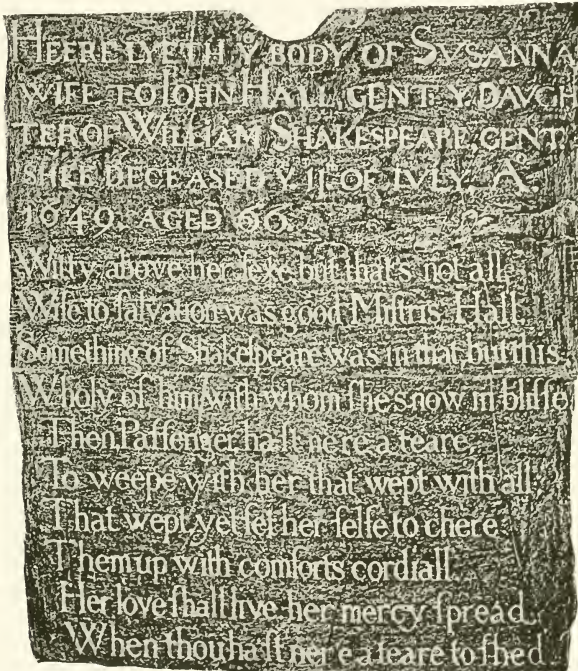 HEERE LYETH Yᴱ BODY OF SVSANNA
WIFE TO IOHN HALL, GENT: Yᴱ DAVGH
TER OF WILLIAM SHAKESPEARE, GENT:
SHEE DECEASED Yᴱ IJᵗʰ OF IVLY. Aº.
1649, AGED 66.
Witty above her sexe, but that's not all,
Wise to salvation was good Mistris Hall,
Something of Shakespeare was in that, but this
Wholy of him with whom she's now in blisse.
Then Passenger, ha'st ne're a teare,
To weepe with her that wept with all;
That wept, yet set her selfe to chere
Them up with comforts cordiall.
Her love shall live, her mercy spread,
When thou ha'st ner'e a teare to shed.